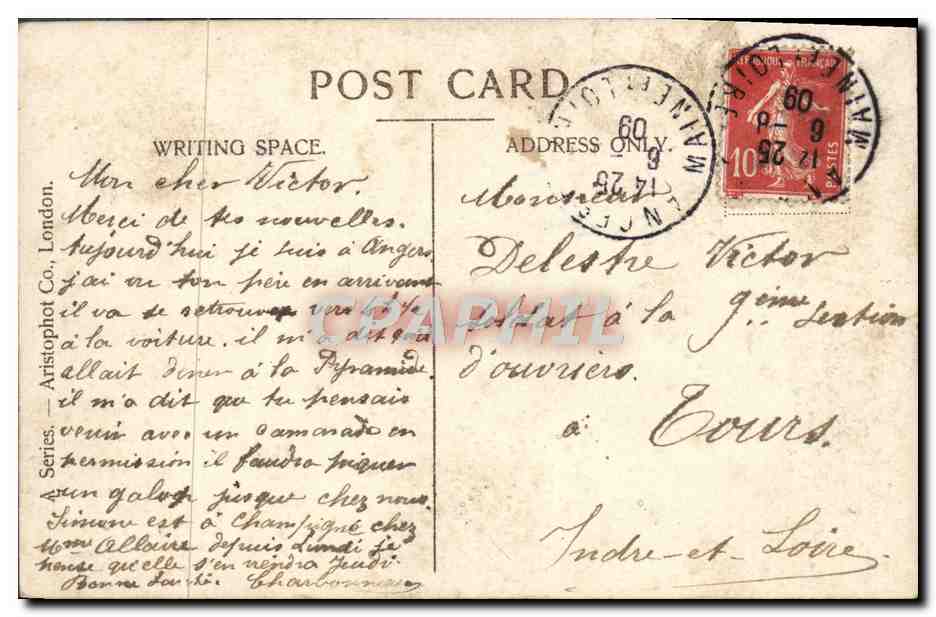 POST CARD
WRITING SPACE.
ADDRESS ONLY.
Series. — Aristophot Co., London.
Mon cher Victor.
Merci de tes nouvelles.
aujourd'hui je suis à Angers
j'ai vu ton père en arrivant
il va se retrouver vers
à la voiture. il m'a dit
allait diner à la Pyramide.
il m'a dit que tu pensais
venir avec un camarade en
permission il faudra piquer
un galop jusque chez nous.
Simone est à Champigné chez
Mme Allaire depuis Lundi je
pense qu'elle s'en viendra Jeudi
Bonne Santé. Charbonneau
Monsieur
Delestre Victor
soldat à la 9ème Section
d'ouvriers.
à Tours.
Indre-et-Loire.
REPUBLIQUE FRANÇAISE
10
POSTES
MAINE ET LOIRE
14 25
6
09
MAINE ET LOIRE
14 25
6 - 8
09
CPAPHIL